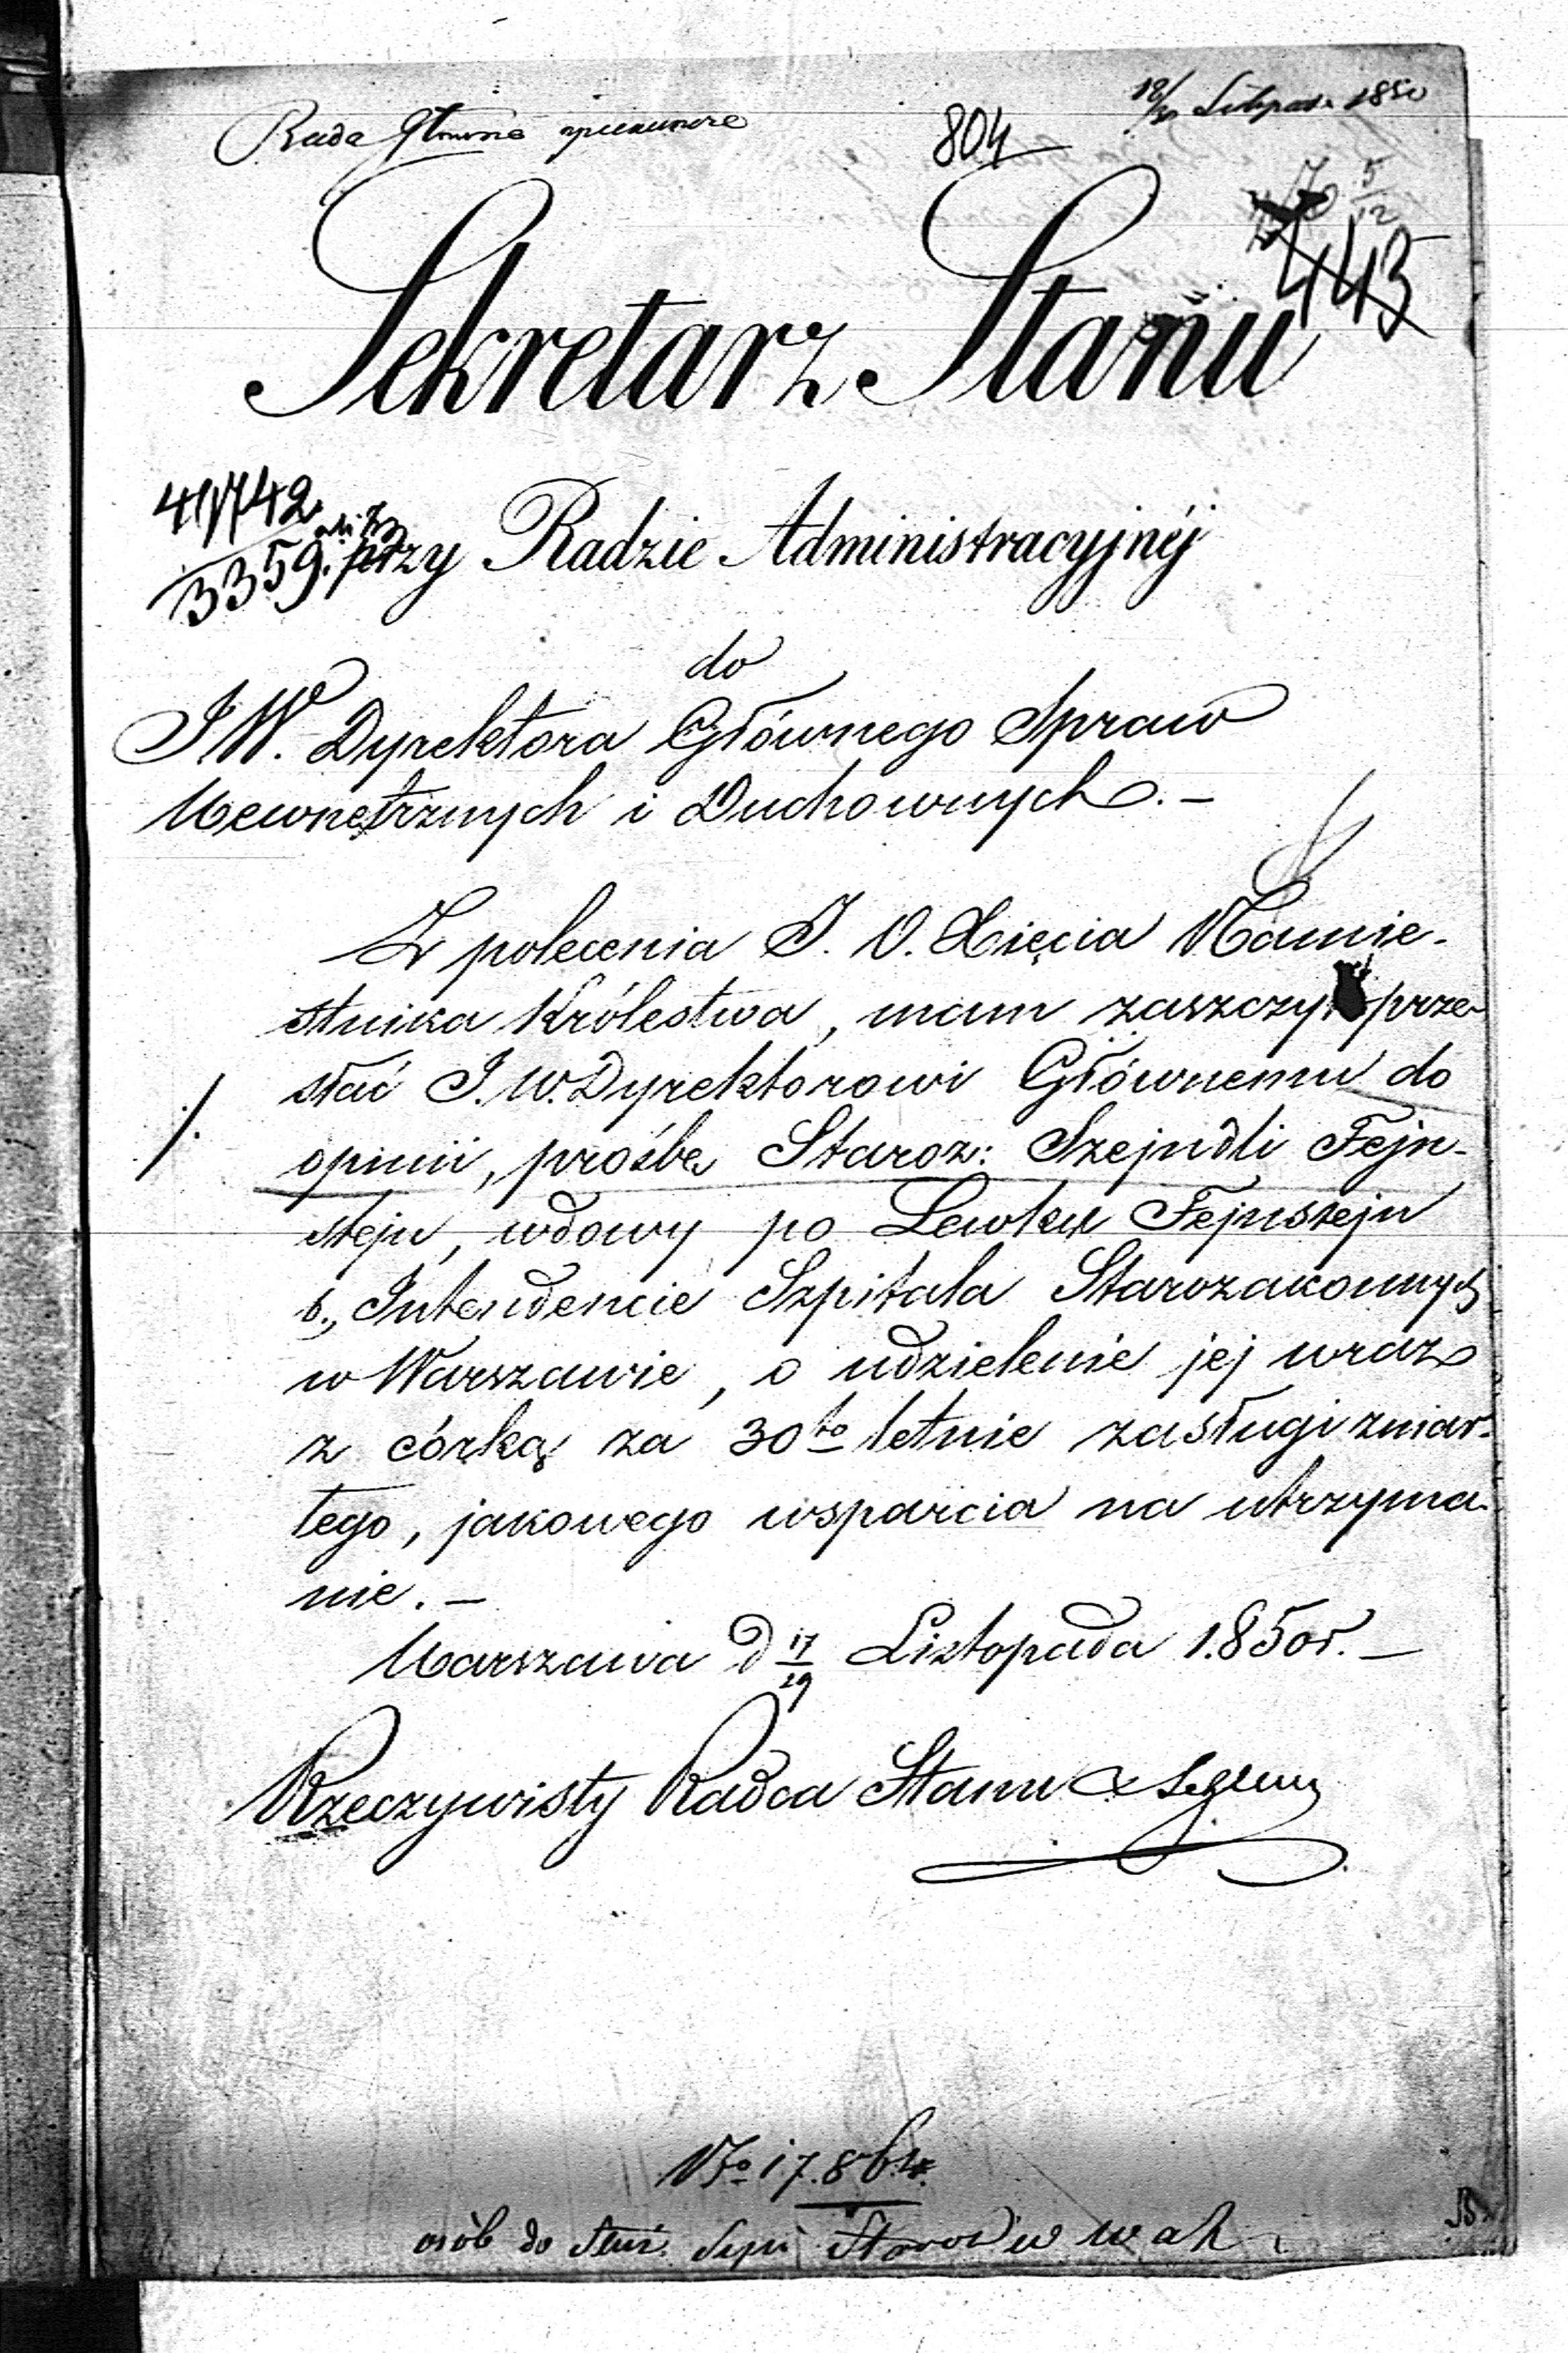 Rada Główna opiekuńcza
804
18/30 Listopada 1850
5/12
443
Sekretarz Stanu
41742
3359.
przy Radzie Administracyjnéj
do
JW. Dyrektora Głównego Spraw
Wewnętrznych i Duchownych. –
Z polecenia J. O. Xięcia Namie-
stnika Królestwa, mam zaszczyt prze-
słać J. W. Dyrektorowi Głównemu do
opinii, prośbę Staroz: Szejndli Fejn-
stejn, wdowy po Lewku Fejnstejn
b., Intendencie Szpitala Starozakonnych
w Warszawie, o udzielenie jej wraz
z córką za 30to letnie zasługi zmar-
łego, jakowego wsparcia na utrzyma-
nie. –
Warszawa d 17/29 Listopada 1.850r. –
Rzeczywisty Radca Stanu
No 17.864
osób do